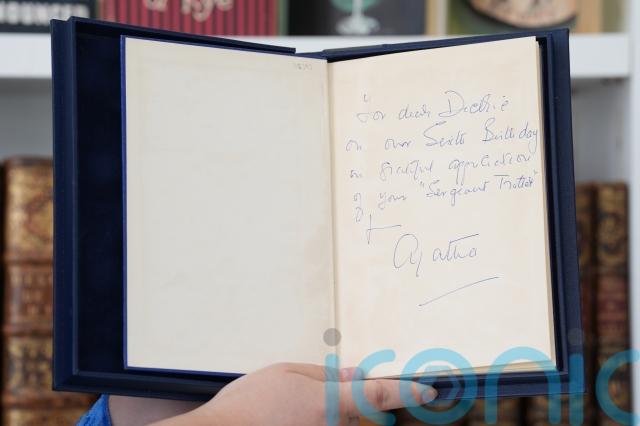 OUNCED
a Rye
For dear Dickie
on our Sixth Birthday
in grateful appreciation
of your "Sergeant Trotter"
Agatha
iconic